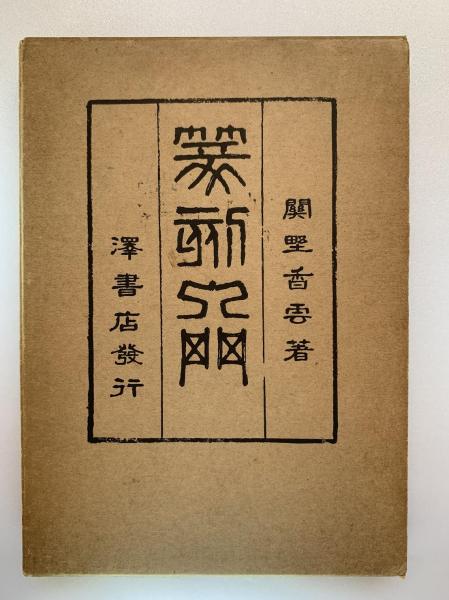 關野香雲著
篆刻入門
澤書店發行